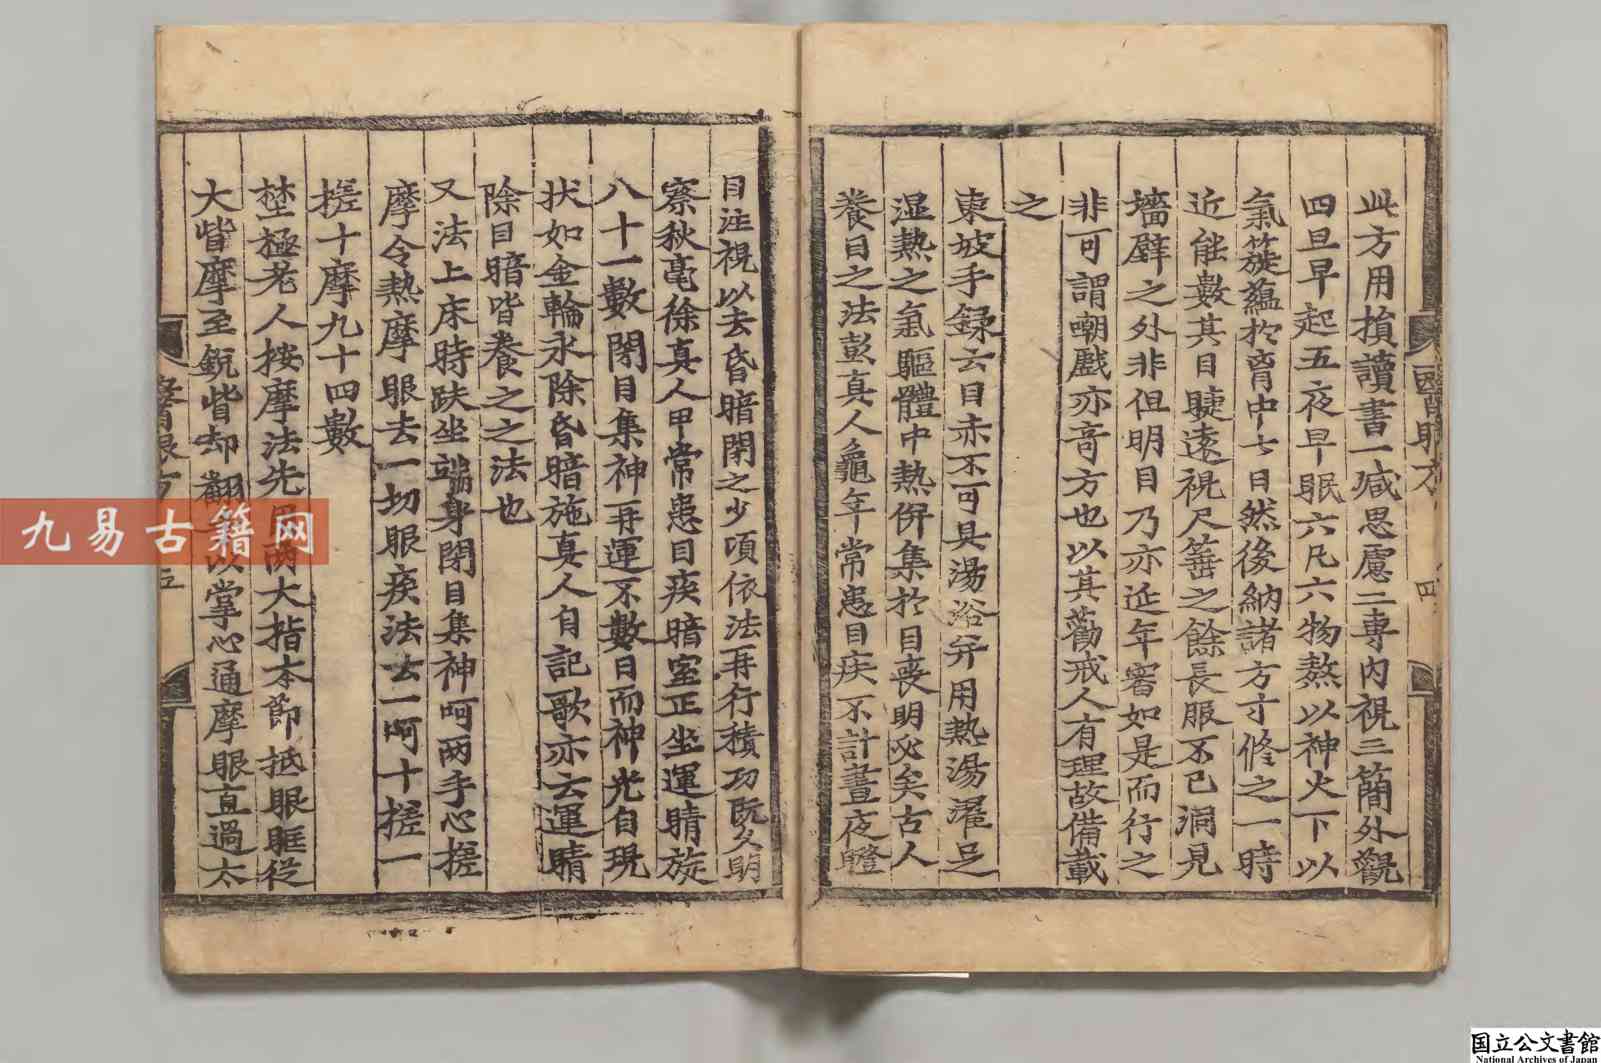 此方用損讀書一減思慮二專內視三簡外觀
四旦早起五夜早眠六凡六物熬以神火下以
氣簁蘊於胷中七日然後納諸方寸修之一時
近能數其目睫遠視尺箠之餘長服不已洞見
墻壁之外非但明目乃亦延年審如是而行之
非可謂嘲戲亦竒方也以其勸戒人有理故備載
之
東坡手録云目赤不可具湯浴并用熱湯濯足
湿熱之氣驅體中熱併集於目喪明必矣古人
養目之法彭真人龜年常患目疾不計晝夜瞪
目注視以去昏暗閉之少頃依法再行積功既久眀
察秋毫徐真人甲常患目疾暗室正坐運睛旋
八十一數閉目集神再運不數日而神光自現
状如金輪永除昏暗施真人自記歌亦云運睛
除目暗皆養之之法也
又法上床時趺坐端身閉目集神呵两手心搓
摩令熱摩眼去一切眼疾法去一呵十搓一
搓十摩九十四數
㙒極老人按摩法先 两大指本節抵眼眶從
大眥摩至鋭眥却翻 以掌心通摩眼直過太
醫眼方
四
五
九易古籍网
国立公文書館
National Archives of Japan